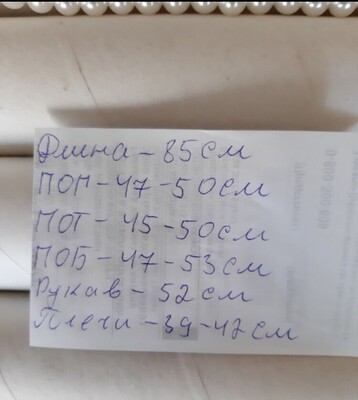 Длина - 85 см
ПОП - 47 - 50 см
ПОТ - 45 - 50 см
ПОБ - 47 - 53 см
Рукав - 52 см
Плечи - 39 - 42 см